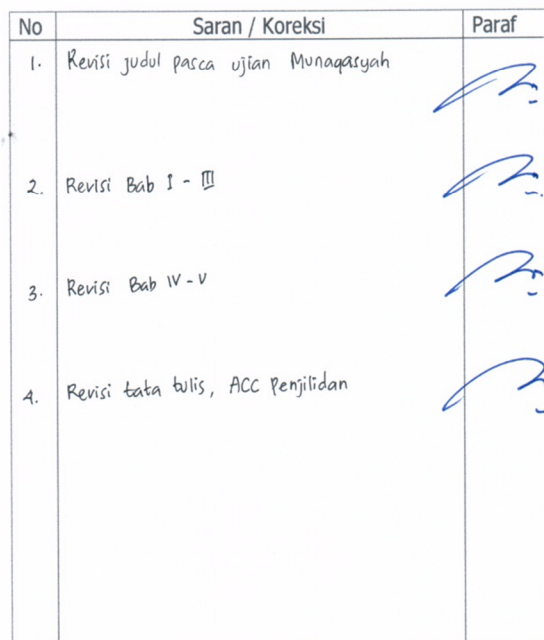 No Saran / Koreksi Paraf
1. Revisi judul pasca ujian Munaqasyah
2. Revisi Bab I - III
3. Revisi Bab IV - V
4. Revisi tata tulis, ACC Penjilidan